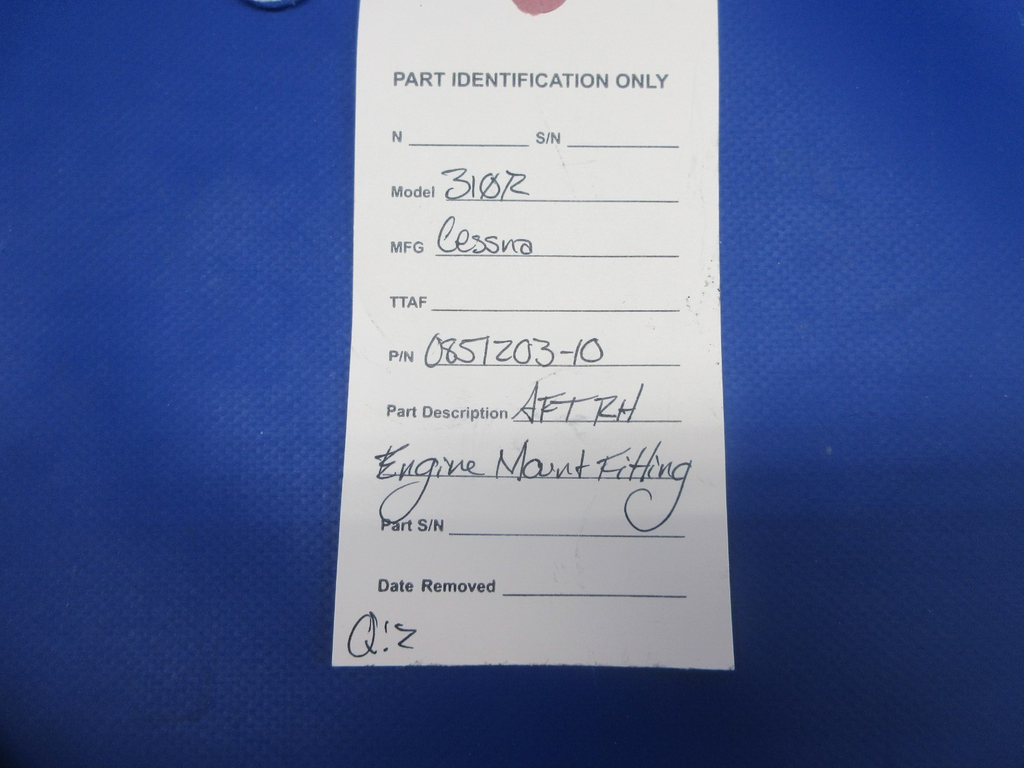 PART IDENTIFICATION ONLY
N S/N
Model 310R
MFG Cessna
TTAF
P/N 0851203-10
Part Description AFT RH
Engine Mount Fitting
Part S/N
Date Removed
Q:2